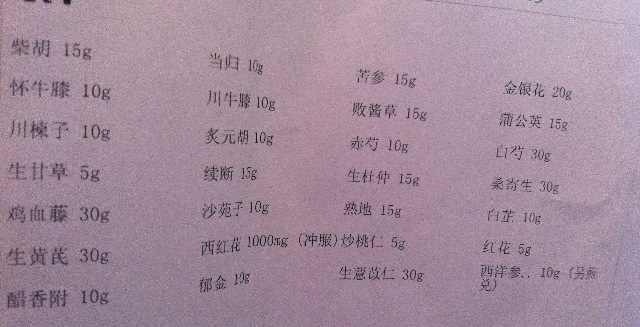 柴胡 15g 当归 10g 苦参 15g 金银花 20g
怀牛膝 10g 川牛膝 10g 败酱草 15g 蒲公英 15g
川楝子 10g 炙元胡 10g 赤芍 10g 白芍 30g
生甘草 5g 续断 15g 生杜仲 15g 桑寄生 30g
鸡血藤 30g 沙苑子 10g 熟地 15g 白芷 10g
生黄芪 30g 西红花 1000mg (冲服) 炒桃仁 5g 红花 5g
醋香附 10g 郁金 10g 生薏苡仁 30g 西洋参.. 10g (另煎兑)